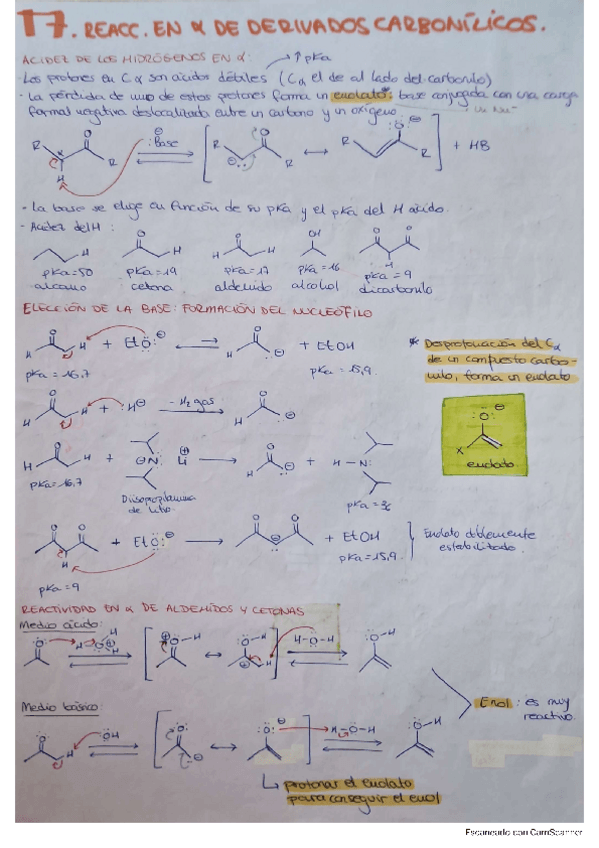 17. REACC. EN α DE DERIVADOS CARBONÍLICOS.
ACIDEZ DE LOS HIDRÓGENOS EN α: → ↑ pKa
- Los protones en Cα son ácidos débiles (Cα el de al lado del carbonilo)
- La pérdida de uno de estos protones forma un enolato*: base conjugada con una carga
formal negativa deslocalizada entre un carbono y un oxígeno.
:Base + HB
- La base se elige en función de su pKa y el pKa del H ácido.
- Acidez del H:
pKa=50 pKa=19 pKa=17 pKa=16 pKa=9
alcano cetona aldehído alcohol dicarbonilo
ELECCIÓN DE LA BASE: FORMACIÓN DEL NUCLEÓFILO
+ EtO + EtOH
pKa=16,7 pKa=15,9.
* Desprotonación del Cα
de un compuesto carbo-
nilo, forma un enolato
enolato
+ :H⊖ - H2 gas
+ ⊖N: Li + H-N:
pKa=16,7 Diisopropilamina
de litio. pKa=36
+ EtO + EtOH
pKa=9 pKa=15,9.
Enolato doblemente
estabilizado.
REACTIVIDAD EN α DE ALDEHÍDOS Y CETONAS
Medio ácido:
H-O-H
Enol: es muy
reactivo.
Medio básico:
OH H-O-H
↳ protonar el enolato
para conseguir el enol
Escaneado con CamScanner